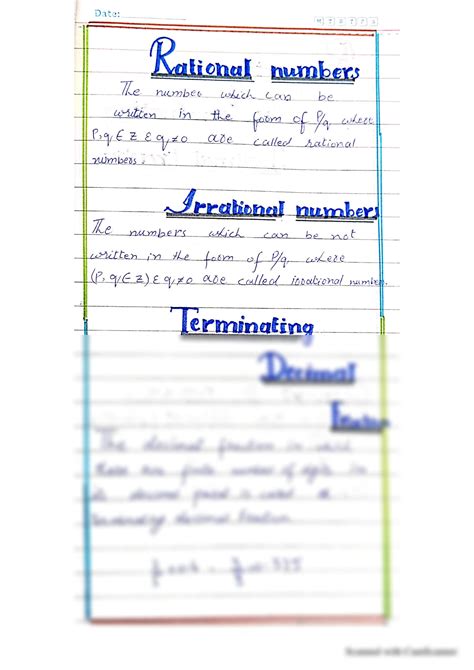 Date:
M T W T F S
Rational numbers
The number which can be
written in the form of P/q where
P,q ∈ Z & q≠0 are called rational
numbers.
Irrational numbers
The numbers which can be not
written in the form of P/q where
(P, q ∈ Z) & q≠0 are called irrational number.
Terminating
Decimal
The decimal fraction in which
there are finite number of digits in
its decimal part is called a
terminating decimal fraction
Scanned with CamScanner